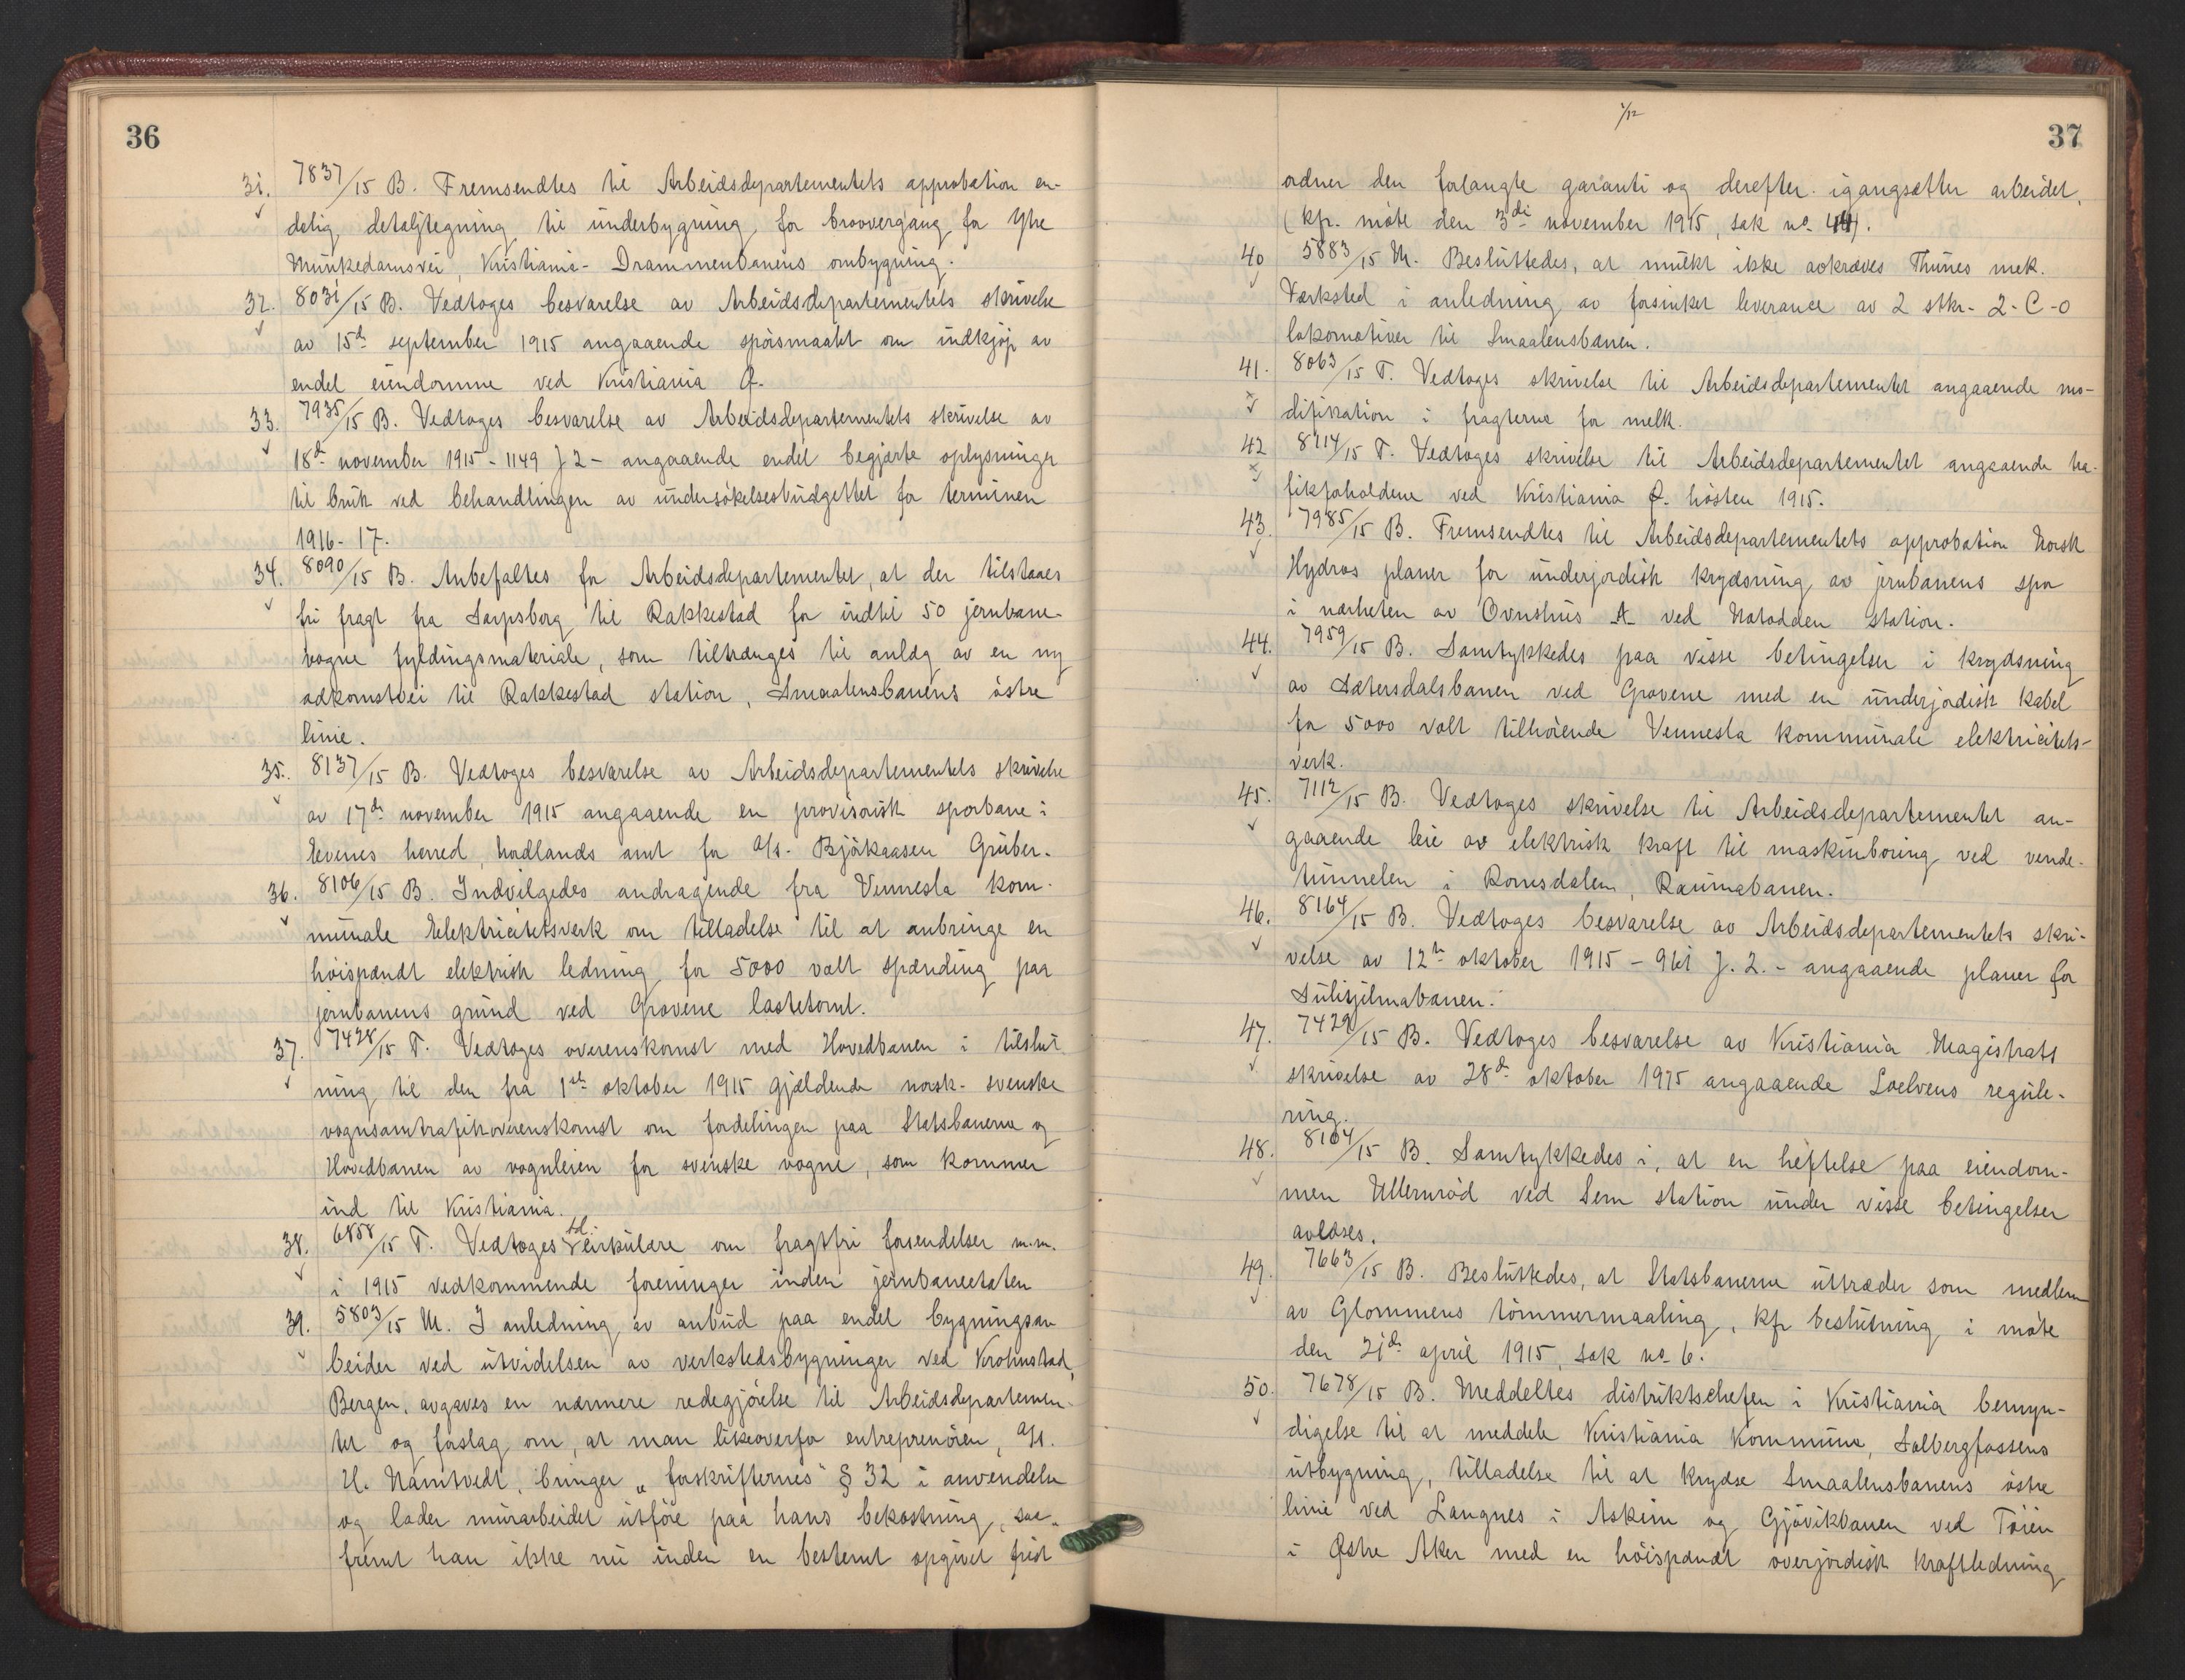 36
31. 7837/15 B. Fremsendtes til Arbeidsdepartementets approbation en-
delig detaljtegning til underbygning for broovergang for Ytre
Munkedamsvei, Kristiania-Drammenbanens ombygning.
32. 8031/15 B. Vedtoges besvarelse av Arbeidsdepartementets skrivelse
av 15de september 1915 angaaende spörsmaalet om indkjöp av
endel eiendomme ved Kristiania Ø.
33. 7935/15 B. Vedtoges besvarelse av Arbeidsdepartementets skrivelse av
18de november 1915 - 1149 J 2 - angaaende endel begjærte oplysninger
til bruk ved behandlingen av undersökelsesbudgettet for terminen
1916-17.
34. 8090/15 B. Anbefaltes for Arbeidsdepartementet, at der tilstaaes
fri fragt fra Sarpsborg til Rakkestad for indtil 50 jernbane-
vogne fyldingsmateriale, som tiltrænges til anlæg av en ny
adkomstvei til Rakkestad station, Smaalensbanens östre
linie.
35. 8137/15 B. Vedtoges besvarelse av Arbeidsdepartementets skrivelse
av 17de november 1915 angaaende en provisorisk sporbane i
Evenes herred, Nordlands amt for A/S. Bjökaasen Gruber.
36. 8106/15 B. Indvilgedes andragende fra Vennesla kom-
munale Elektricitetsverk om tilladelse til at anbringe en
höispændt elektrisk ledning for 5000 volt spænding paa
jernbanens grund ved Grovene lastetomt.
37. 7428/15 T. Vedtoges overenskomst med Hovedbanen i tilslut
ning til den fra 1ste oktober 1915 gjældende norsk-svenske
vognsamtrafikoverenskomst om fordelingen paa Statsbanerne og
Hovedbanen av vognleien for svenske vogne, som kommer
ind til Kristiania.
38. 6858/15 T. Vedtoges td. cirkulære om fragtfri forsendelser m.m.
i 1915 vedkommende foreninger inden jernbaneetaten
39. 5803/15 M. I anledning av anbud paa endel bygningsar
beider ved utvidelsen av verkstedsbygninger ved Krohnstad,
Bergen, avgaves en nærmere redegjörelse til Arbeidsdepartemen-
tet og forslag om, at man likeoverfor entreprenören, A/S.
H. Namtvedt, bringer „forskrifternes" § 32 i anvendelse
og lader murarbeidet utföre paa hans bekostning, saa-
fremt han ikke nu inden en bestemt opgivet frist
1/12
37
ordner den forlangte garanti og derefter igangsætter arbeidet.
(kfr. möte den 3die november 1915, sak no. 44).
40 5883/15 M. Besluttedes, at mulkt ikke avkræves Thunes mek.
Værksted i anledning av forsinket leverance av 2 stkr. 2-C-0
lokomotiver til Smaalensbanen.
41. 8063/15 T. Vedtoges skrivelse til Arbeidsdepartementet angaaende mo-
difikation i fragterne for melk.
42 8114/15 T. Vedtoges skrivelse til Arbeidsdepartementet angaaende tra-
fikforholdene ved Kristiania Ø. hösten 1915.
43. 7985/15 B. Fremsendtes til Arbeidsdepartementets approbation Norsk
Hydros planer for underjordisk krydsning av jernbanens spor
i nærheten av Ovnshus A ved Notodden Station.
44. 7959/15 B. Samtykkedes paa visse betingelser i krydsning
av Sætersdalsbanen ved Grovene med en underjordisk kabel
for 5000 volt tilhörende Vennesla kommunale elektricitets-
verk.
45. 7112/15 B. Vedtoges skrivelse til Arbeidsdepartementet an-
gaaende leie av elektrisk kraft til maskinboring ved vende-
tunnelen i Romsdalen, Raumabanen.
46. 8164/15 B. Vedtoges besvarelse av Arbeidsdepartementets skri-
velse av 12te oktober 1915 - 961 J. 2. - angaaende planer for
Sulitjelmabanen.
47. 7429/15 B. Vedtoges besvarelse av Kristiania Magistrats
skrivelse av 28de oktober 1915 angaaende Loelvens regule-
ring.
48. 8104/15 B. Samtykkedes i, at en heftelse paa eiendom-
men Ullernröd ved Sem station under visse betingelser
avlöses.
49. 7663/15 B. Besluttedes, at Statsbanerne uttræder som medlem
av Glommens tömmermaaling, kfr beslutning i möte
den 21de april 1915, sak no 6.
50. 7678/15 B. Meddeltes distriktschefen i Kristiania bemyn-
digelse til at meddele Kristiania Kommune, Solbergfossens
utbygning, tilladelse til at krydse Smaalensbanens östre
linie ved Langnes i Askim og Gjövikbanen ved Töien
i Østre Aker med en höispændt overjordisk kraftledning